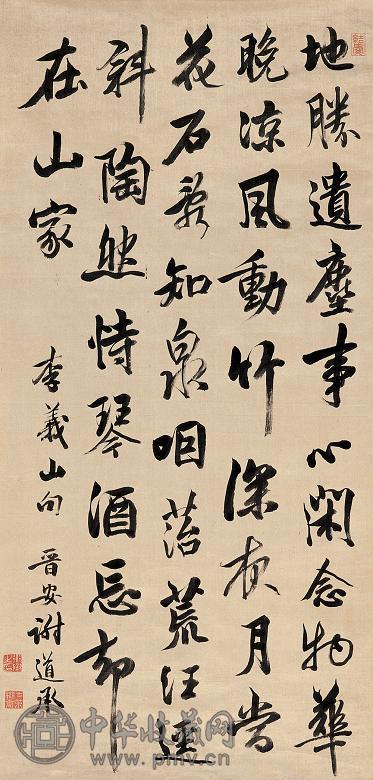 地勝遺塵事心閑念物華
晚涼風動竹深夜月當
花石亂知泉咽苔荒任逕
斜陶然恃琴酒忘却
在山家
李義山句 晋安謝道承
中华收藏网
www.pmv.cn